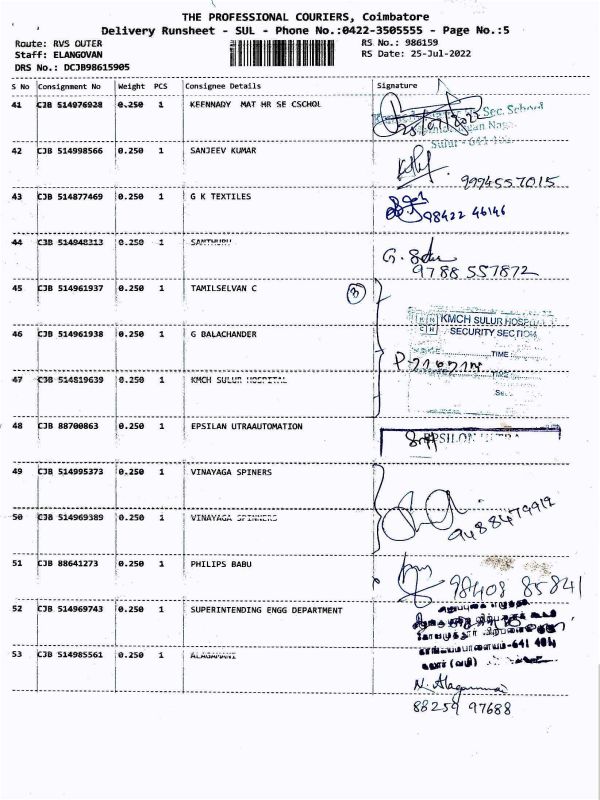 THE PROFESSIONAL COURIERS, Coimbatore
Delivery Runsheet - SUL - Phone No.:0422-3505555 - Page No.:5
Route: RVS OUTER
Staff: ELANGOVAN
DRS No.: DCJB98615905
RS No.: 986159
RS Date: 25-Jul-2022
S No Consignment No Weight PCS Consignee Details Signature
41 CJB 514976928 0.250 1 KEENNADY MAT HR SE CSCHOL
Sec. School
Sulur - 641
42 CJB 514998566 0.250 1 SANJEEV KUMAR
9994557015
43 CJB 514877469 0.250 1 G K TEXTILES
98422 46146
44 CJB 514948313 0.250 1 SAMTHURU
9788 557872
45 CJB 514961937 0.250 1 TAMILSELVAN C
3
KMCH SULUR HOSPITAL
SECURITY SECTION
46 CJB 514961938 0.250 1 G BALACHANDER
TIME
47 CJB 514819639 0.250 1 KMCH SULUR HOSPITAL
TIME
48 CJB 88700863 0.250 1 EPSILAN UTRAAUTOMATION
49 CJB 514995373 0.250 1 VINAYAGA SPINERS
50 CJB 514969389 0.250 1 VINAYAGA SPINNERS
9488479912
51 CJB 88641273 0.250 1 PHILIPS BABU
98408 85841
52 CJB 514969743 0.250 1 SUPERINTENDING ENGG DEPARTMENT
53 CJB 514985561 0.250 1 ALAGAMANI
88259 97688